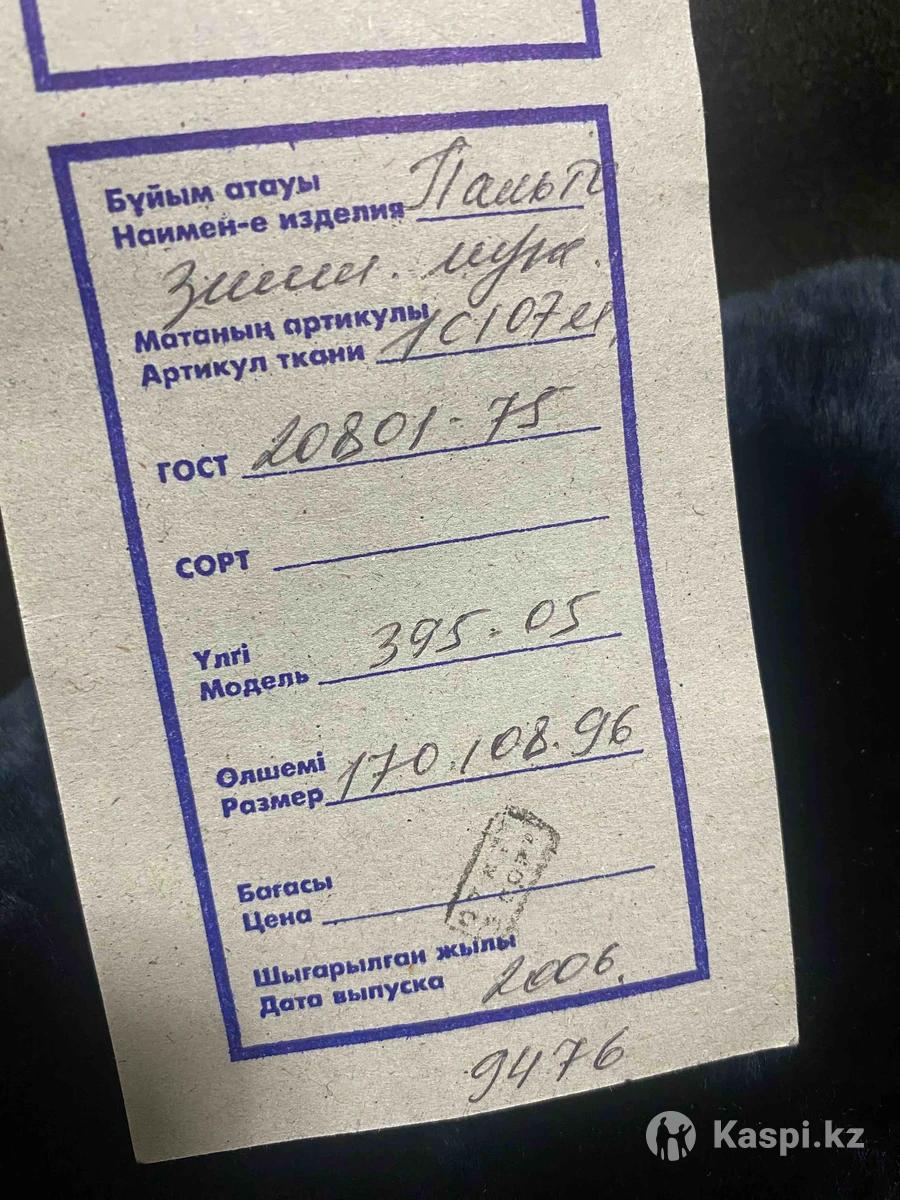 Бұйым атауы
Наимен-е изделия Пальто
зимн. муж.
Матаның артикулы
Артикул ткани 1С107
ГОСТ 20801-75
СОРТ
Үлгі
Модель 395-05
Өлшемі
Размер 170.108.96
Бағасы
Цена
Шығарылған жылы
Дата выпуска 2006.
9476
Kaspi.kz